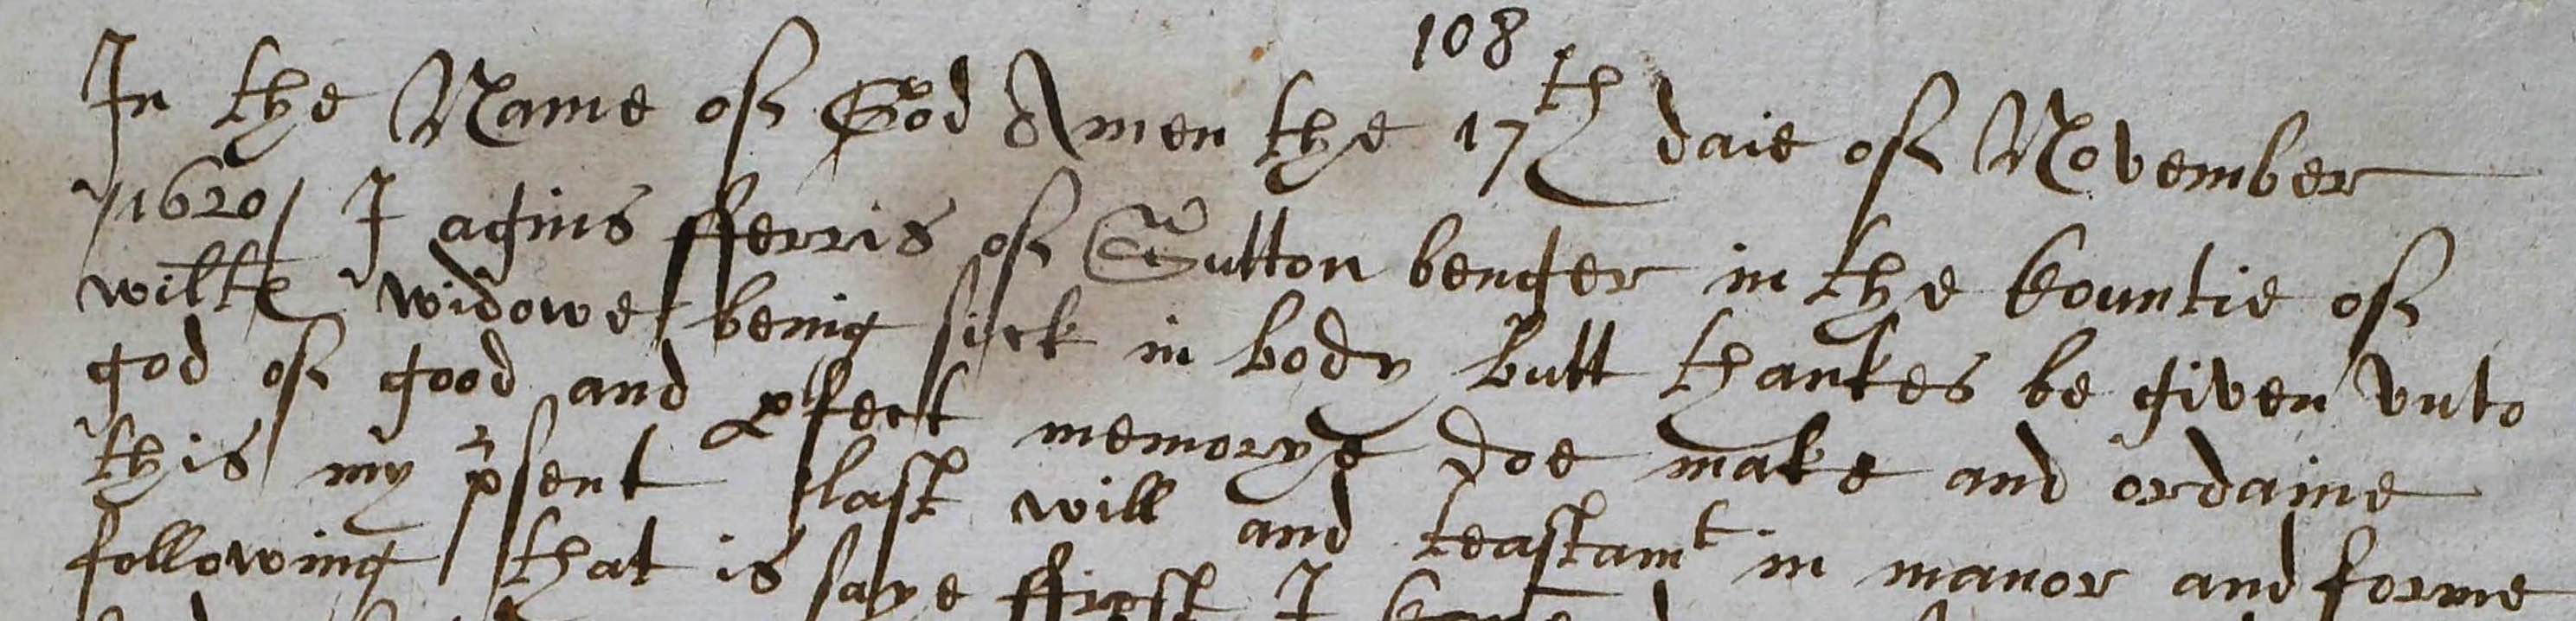 108
In the Name of God Amen the 17th daie of November
/1620/ I agnis fferris of Sutton benger in the Countie of
wilts widowe being sick in body butt thankes be given vnto
god of good and pfect memorye doe make and ordaine
this my psent last will and teastamt in manor and forme
following that is saye ffirst I